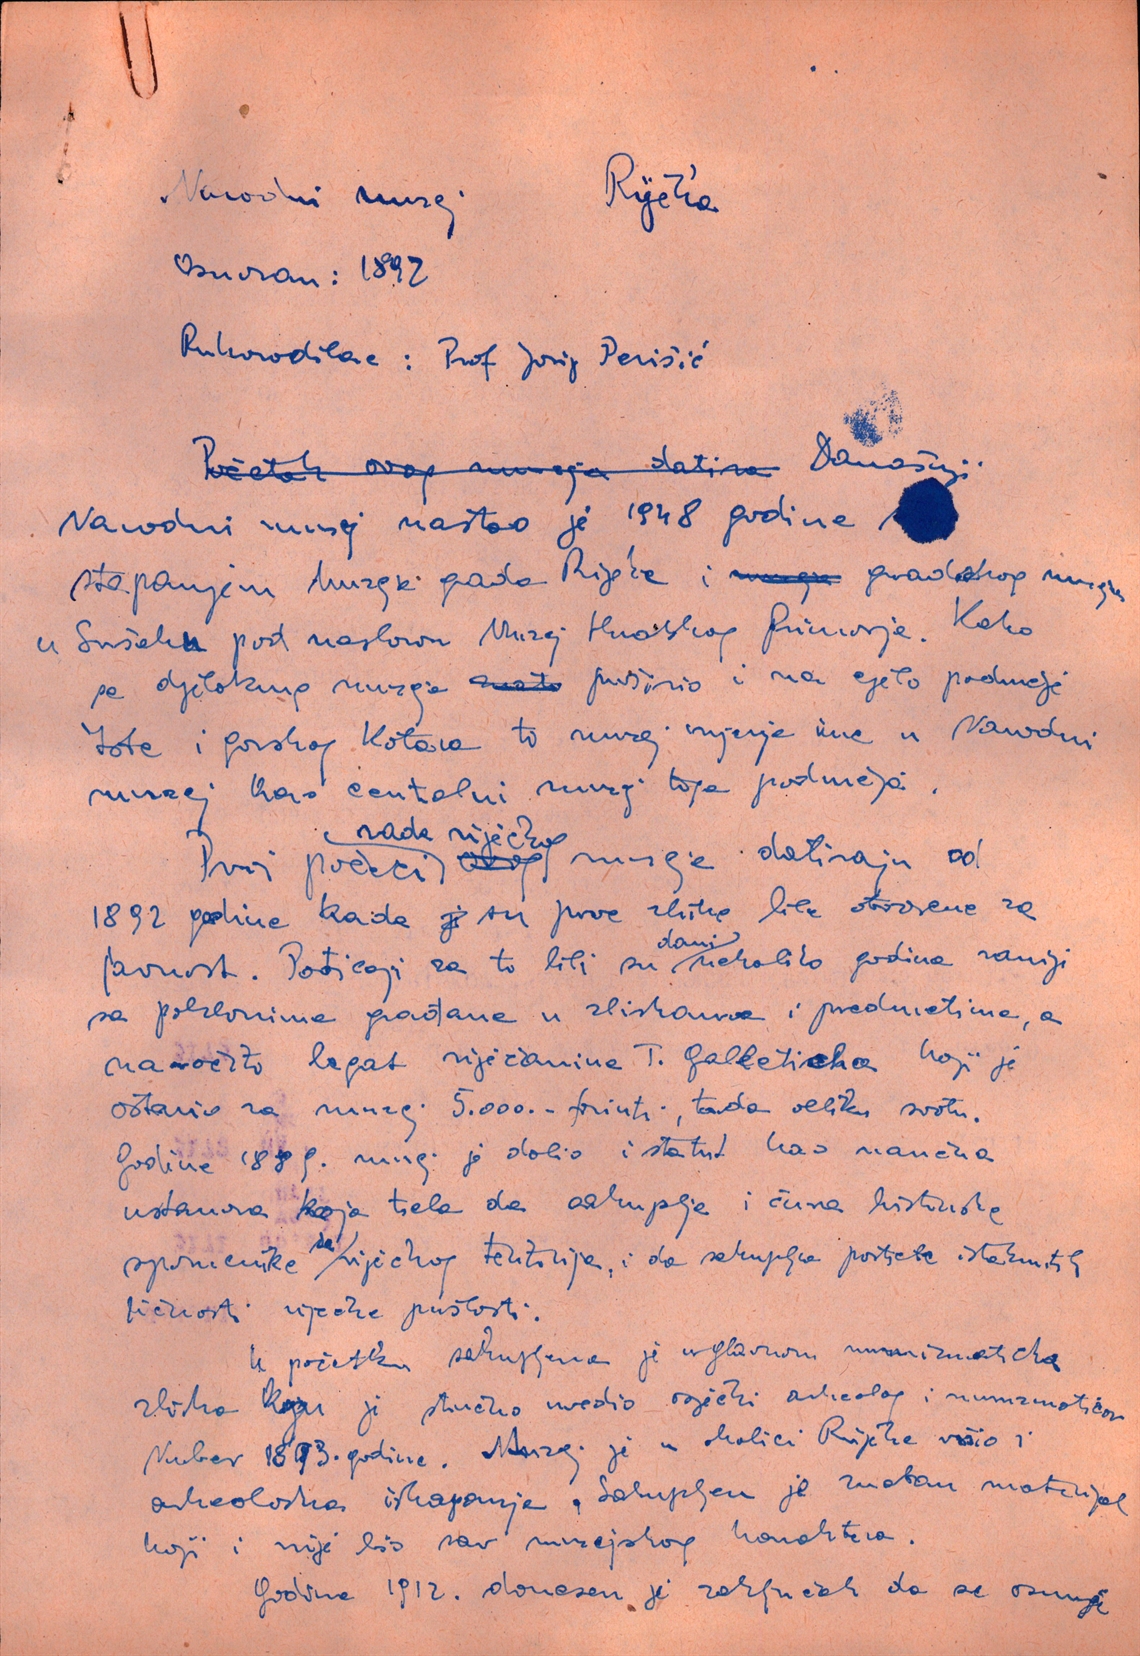 Narodni muzej Rijeka
Osnovan: 1892
Rukovodilac: Prof Josip Perišić
Početak ovog muzeja datira Današnji
Narodni muzej nastao je 1948 godine
stapanjem Muzeja grada Rijeke i muzeja gradskog muzeja
u Sušaku pod naslovom Muzej Hrvatskog Primorja. Kako
se djelokrug muzeja proširio i na cijelo područje
Istre i gorskog Kotara to muzej mjenja ime u Narodni
muzej kao centralni muzej toga područja.
rada riječkog
Prvi počeci ovog muzeja datiraju od
1892 godine kada je su prve zbirke bile otvorene za
javnost. Poticaji za to bili su nekoliko godina raniji
dani
sa poklonima građana u zbirkama i predmetima, a
naročito legat riječanina T. koji je
ostavio za muzej 5.000.- forinti, tada veliku svotu.
Godine 1889. muzej je dobio i statut kao naučna
ustanova koja treba da sakuplja i čuva historiske
spomenike sa riječkog teritorija, i da sakuplja portrete istaknutih
ličnosti riječke prošlosti.
U početku sakupljena je uglavnom numizmatička
zbirka koju je stručno uredio osječki arheolog i numizmatičar
1893. godine. Muzej je u okolici Rijeke vršio i
arheološka iskapanja. Sakupljen je znatan materijal
koji i nije bio sav muzejskog karaktera.
Godine 1912. donesen je zaključak da se osnuje